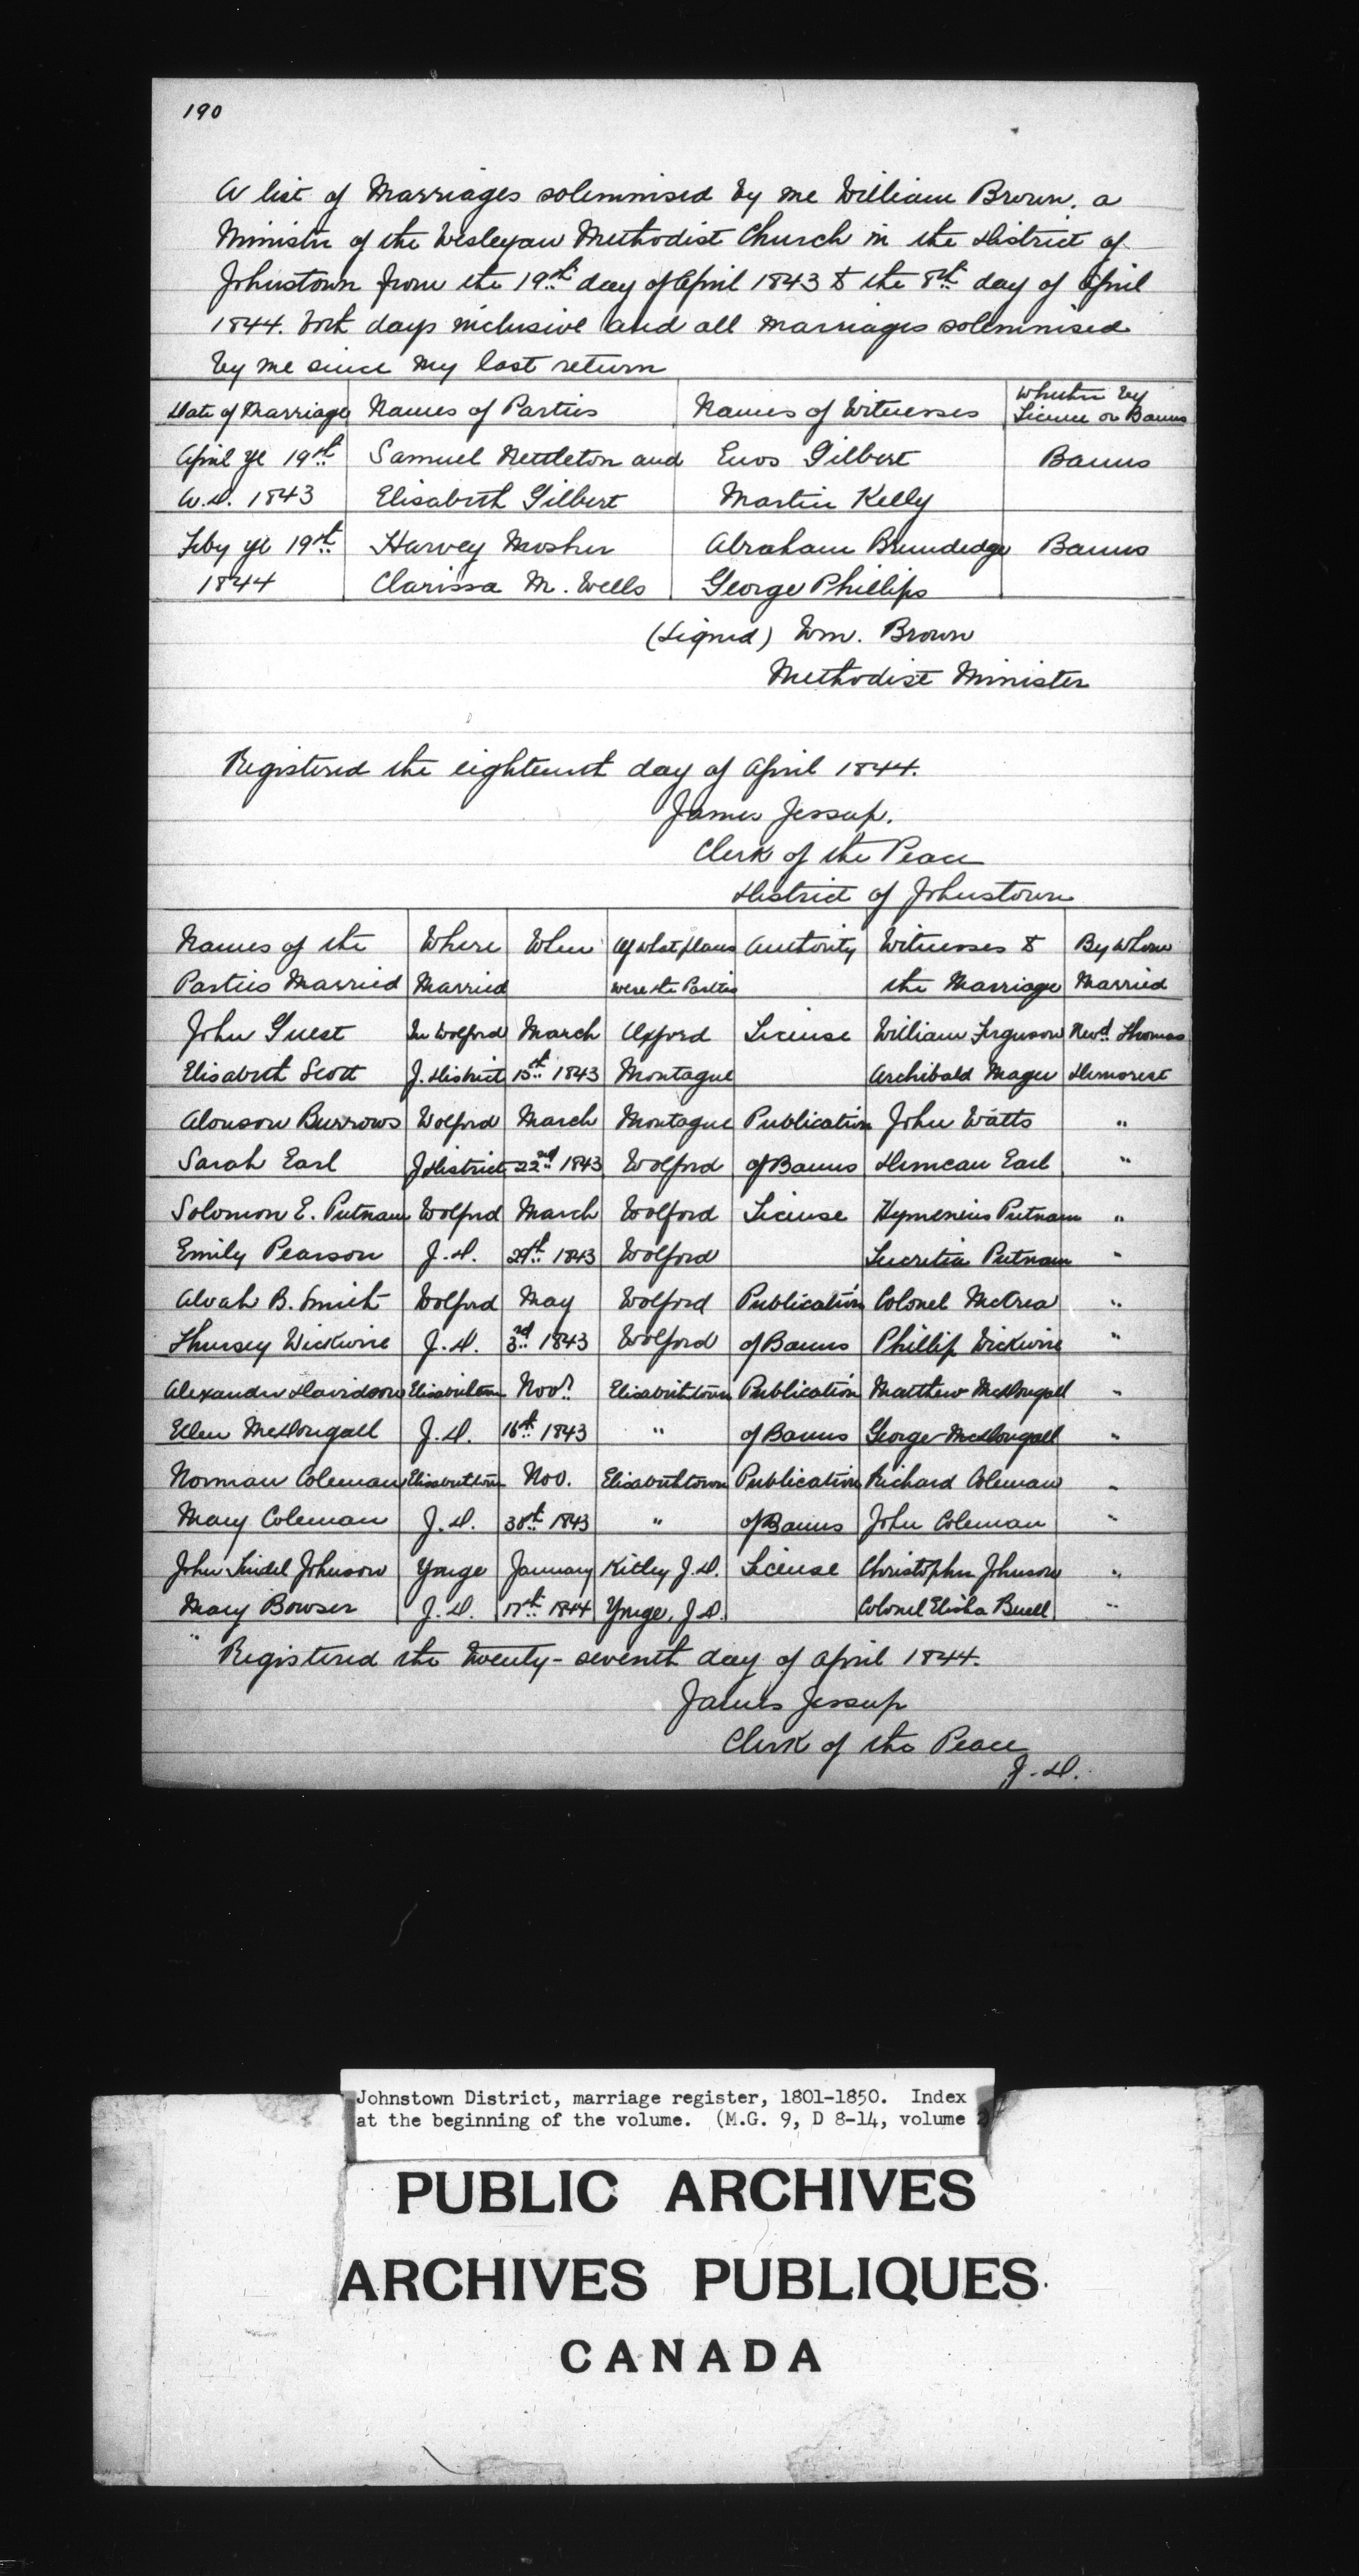 190
A list of Marriages solemnised by me William Brown, a
Minister of the Wesleyan Methodist Church in the District of
Johnstown from the 19th day of April 1843 to the 8th day of April
1844. both days inclusive and all marriages solemnised
by me since my last return
Date of Marriage Names of Parties Names of Witnesses Whether by Licence or Banns
April ye 19th Samuel Nettleton and Enos Gilbert Banns
A.D. 1843 Elisabeth Gilbert Martin Kelly
Feby ye 19th Harvey Mosher Abraham Brundedge Banns
1844 Clarissa M. Wells George Phillips
(Signed) Wm. Brown
Methodist Minister
Registered the eighteenth day of April 1844.
James Jessup.
Clerk of the Peace
District of Johnstown
Names of the Where When Of what place Authority Witnesses to By Whom
Parties Married Married were the Parties the Marriage Married
John Guest In Wolford March Oxford License William Ferguson Revd. Thomas
Elisabeth Scott J. District 15th 1843 Montague Archibald Magee Demorest
Alonson Burrows Wolford March Montague Publication John Watts "
Sarah Earl J District 22nd 1843 Wolford of Banns Duncan Earl "
Solomon E. Putnam Wolford March Wolford License Hymenius Putnam "
Emily Pearson J.D. 29th 1843 Wolford Lucretia Putnam "
Alvah B. Smith Wolford May Wolford Publication Colonel McCrea "
Thursey Wickwire J.D. 3rd 1843 Wolford of Banns Phillip Wickwire "
Alexander Davidson Elisabethtown Novr. Elisabethtown Publication Matthew McDougall "
Ellen McDougall J.D. 16th 1843 " of Banns George McDougall "
Norman Coleman Elisabethtown Nov. Elisabethtown Publication Richard Coleman "
Mary Coleman J.D. 30th 1843 " of Banns John Coleman "
John Lindel Johnson Yonge January Kitley J.D. License Christopher Johnson "
Mary Bowser J.D. 17th 1844 Yonge, J.D. Colonel Elisha Buell "
" Registered the twenty-seventh day of April 1844.
James Jessup
Clerk of the Peace
J.D.
Johnstown District, marriage register, 1801-1850. Index
at the beginning of the volume. (M.G. 9, D 8-14, volume 2)
PUBLIC ARCHIVES
ARCHIVES PUBLIQUES
CANADA